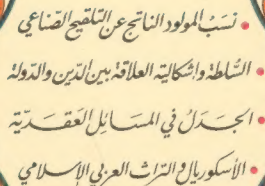 • نسَبُ المولود الناتج عن التلقيح الصّناعي
• السُّلطة وإشكالية العلاقة بين الدّين والدّولة
• الجَدَلُ في المسَائِل العَقَديّة
• الأسكوريال والتراث العربي الإسلامي